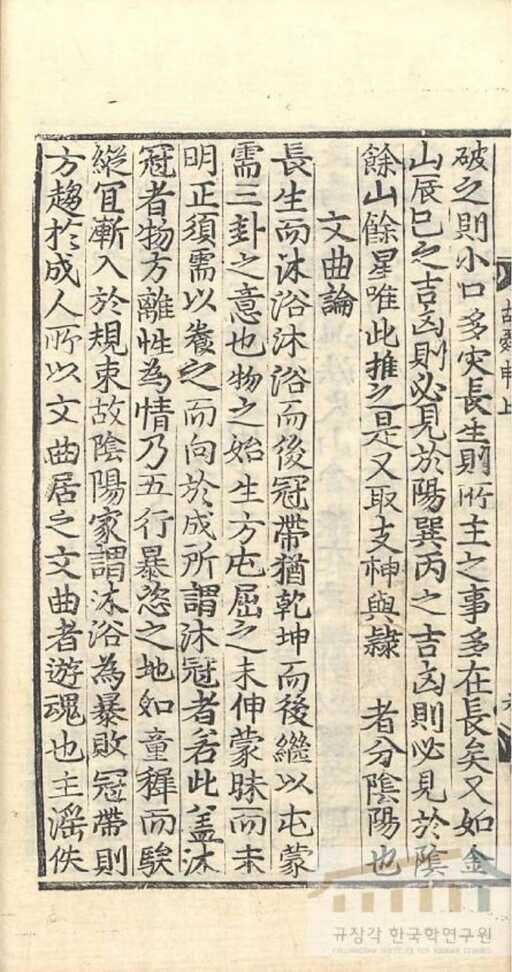 破之則小口多灾長生則所主之事多在長矣又如金
山辰巳之吉凶則必見於陽巽丙之吉凶則必見於陰
餘山餘星唯此推之是又取支神與隷 者分陰陽也
文曲論
長生而沐浴沐浴而後冠帶猶乾坤而後繼以屯蒙
需三卦之意也物之始生方屯屈之未伸蒙昧而未
明正須需以養之而向於成所謂沐冠者若此盖沐
冠者物方離性為情乃五行暴恣之地如童穉而騃
縱冝漸入於規束故陰陽家謂沐浴為暴敗冠帶則
方趨於成人所以文曲居之文曲者遊魂也主滛佚
규장각 한국학연구원